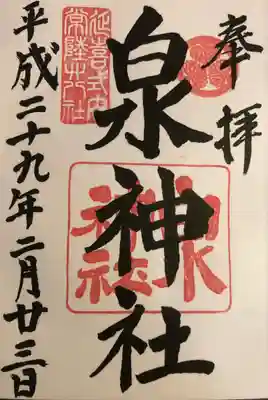 奉拝
延喜式内
常陸廿八社
泉神社
泉
神社
平成二十九年二月廿三日